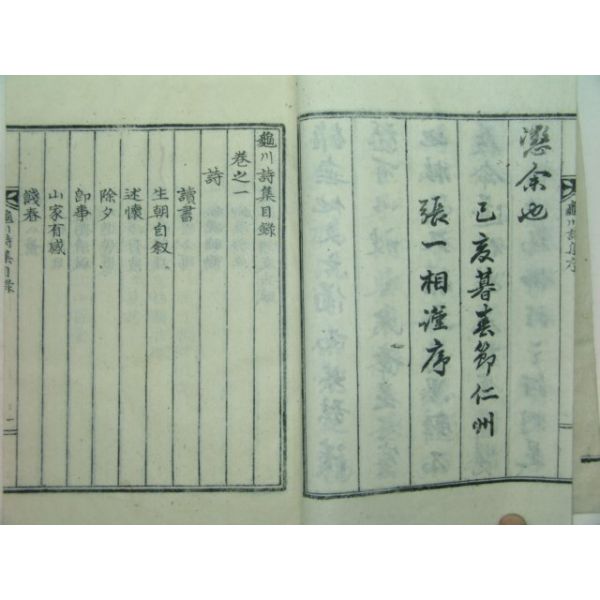 懲余也
己亥暮春節仁州
張一相謹序
龜川詩集序
龜川詩集目錄
卷之一
詩
讀書
生朝自叙
述懷
除夕
卽事
山家有感
餞春
龜川詩集目錄
一